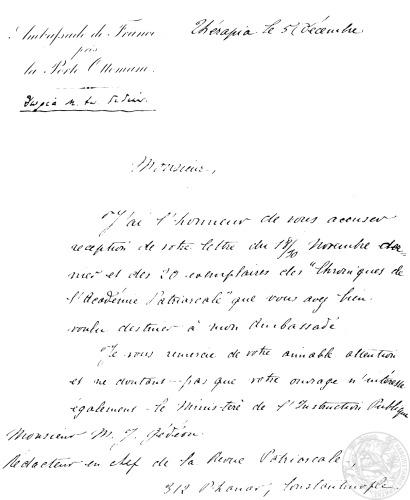 Ambassade de France
près
la Porte Ottomane
Thérapia le 5 Décembre
Monsieur,
J'ai l'honneur de vous accuser
reception de votre lettre du 18/30 Novembre der-
nier et des 20 exemplaires des "Chroniques de
l'Académie Patriarcale" que vous avez bien
voulu destiner à mon Ambassade
Je vous remercie de votre aimable attention
et ne doutant pas que votre ouvrage n'intéresse
également le Ministère de l'Instruction Publique
Monsieur M. J. Gédéon
Rédacteur en chef de la Revue Patriarcale,
312 Phanar, Constantinople.